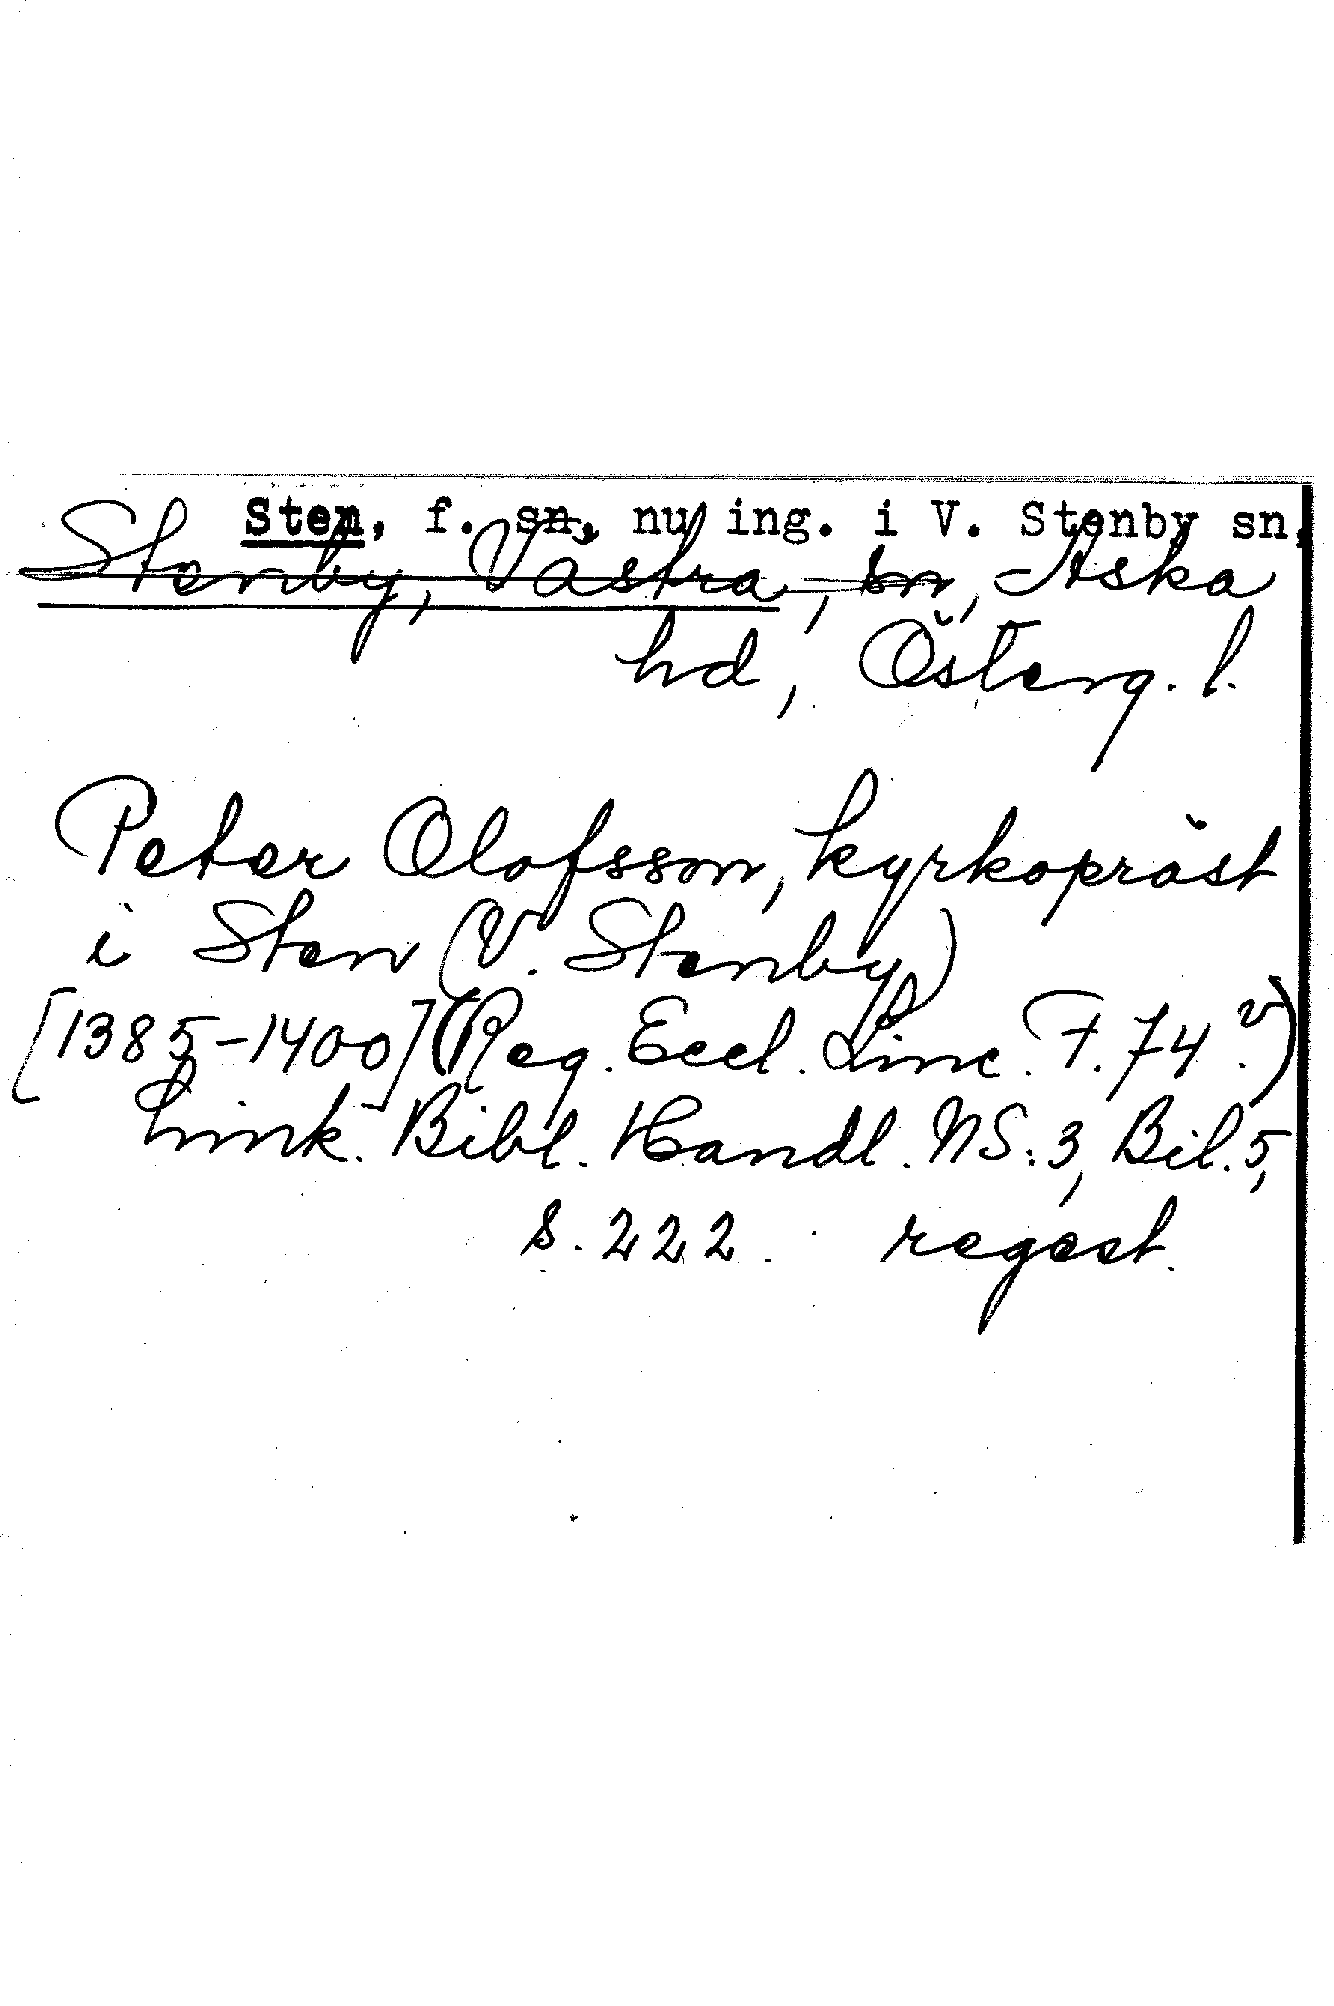 Sten, f. sn, nu ing. i V. Stenby sn,
Stenby, Västra, sn, Aska
hd, Österg. l.
Peter Olofsson, kyrkopräst
i Sten (V. Stenby)
[1385-1400] (Reg. Eccl. Linc. F. 74 v.)
Link. Bibl. Handl. NS. 3, Bil. 5,
s. 222. regest.